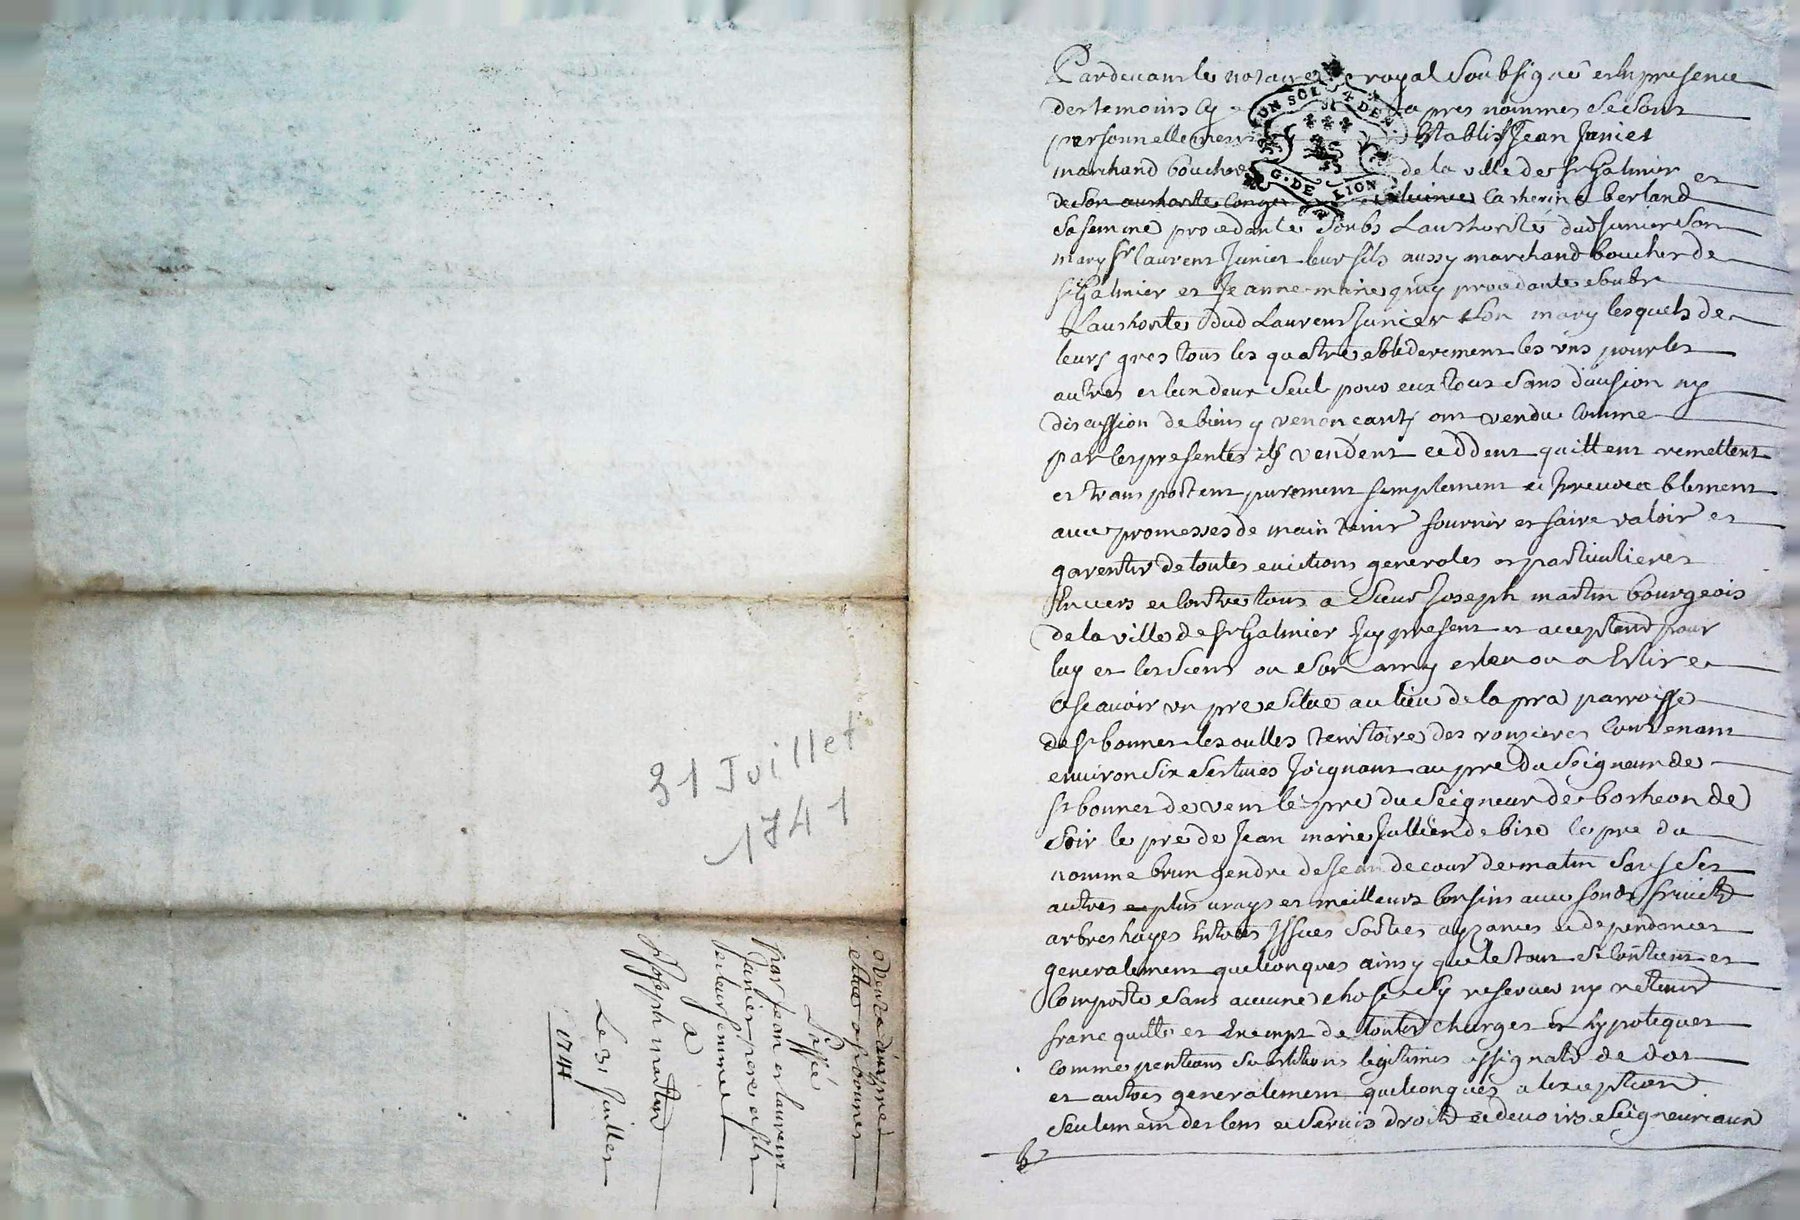 31 Juillet
1741
Vente d'un pre
situé a st bonnet
Liffié
par jean et laurent
Junier pere et fils
et leur femmes
a
Sr Joseph martin
Le 31 juillet
1741
Pardevant le notaire royal soubsigné et en presence
des temoins cy apres nommes se sont
personnellement Etablis Jean Junier
marchand boucher de la ville de st Galmier et
de son authorite conge licence catherine berland
sa femme procedante soubs Lauthorite dud Junier son
mary sr laurent Junier leur fils aussy marchand boucher de
st Galmier et Jeanne marie procedante soubs
Lauthorite dud Laurent Junier son mary lesquels de
leurs gres tous les quatre solliderement les uns pour les
autres et lun deux seul pour eux tous sans division ny
discussion de biens y renoncant ont vendu comme
par les presentes ils vendent ceddent quittent remettent
et transportent purement simplement et Irrevocablement
avec promesses de maintenir fournir et faire valoir et
garentir de toutes evictions generales et particulieres
Envers et contre tous a sieur Joseph martin bourgeois
de la ville de st Galmier Icy present et acceptant pour
luy et les siens ou son amy esleu ou a Eslire
ascavoir un pre situe au lieu de la pra parroisse
de st bonnet les oulles territoire des ronzieres contenant
environ six Joignant au pre du Seigneur de
st bonnet de vent le pre du Seigneur de botheon de
soir le pre de Jean marie Jullien de bize le pre du
nomme brun gendre de Jean decour de matin sauf ses
autres et plus vrays et meilleurs confins avec fonds fruicts
arbres hayes Entrees Issues sorties aysances et dependances
generalement quelconques ainsy que le tout se contient et
comporte sans aucune chose sy reserver ny retenir
franc quitte et Exempt de toutes charges et hypoteques
comme pentions substitutions legitimes assignats de dot
et autres generalement quelconques a lexception
seulement des cens et servis droits et devoirs seigneuriaux
UN SOL 4 DEN.
G. DE LION